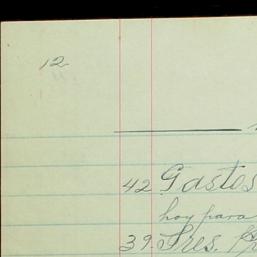 12
42 Gastos
hoy para
39. Sres.